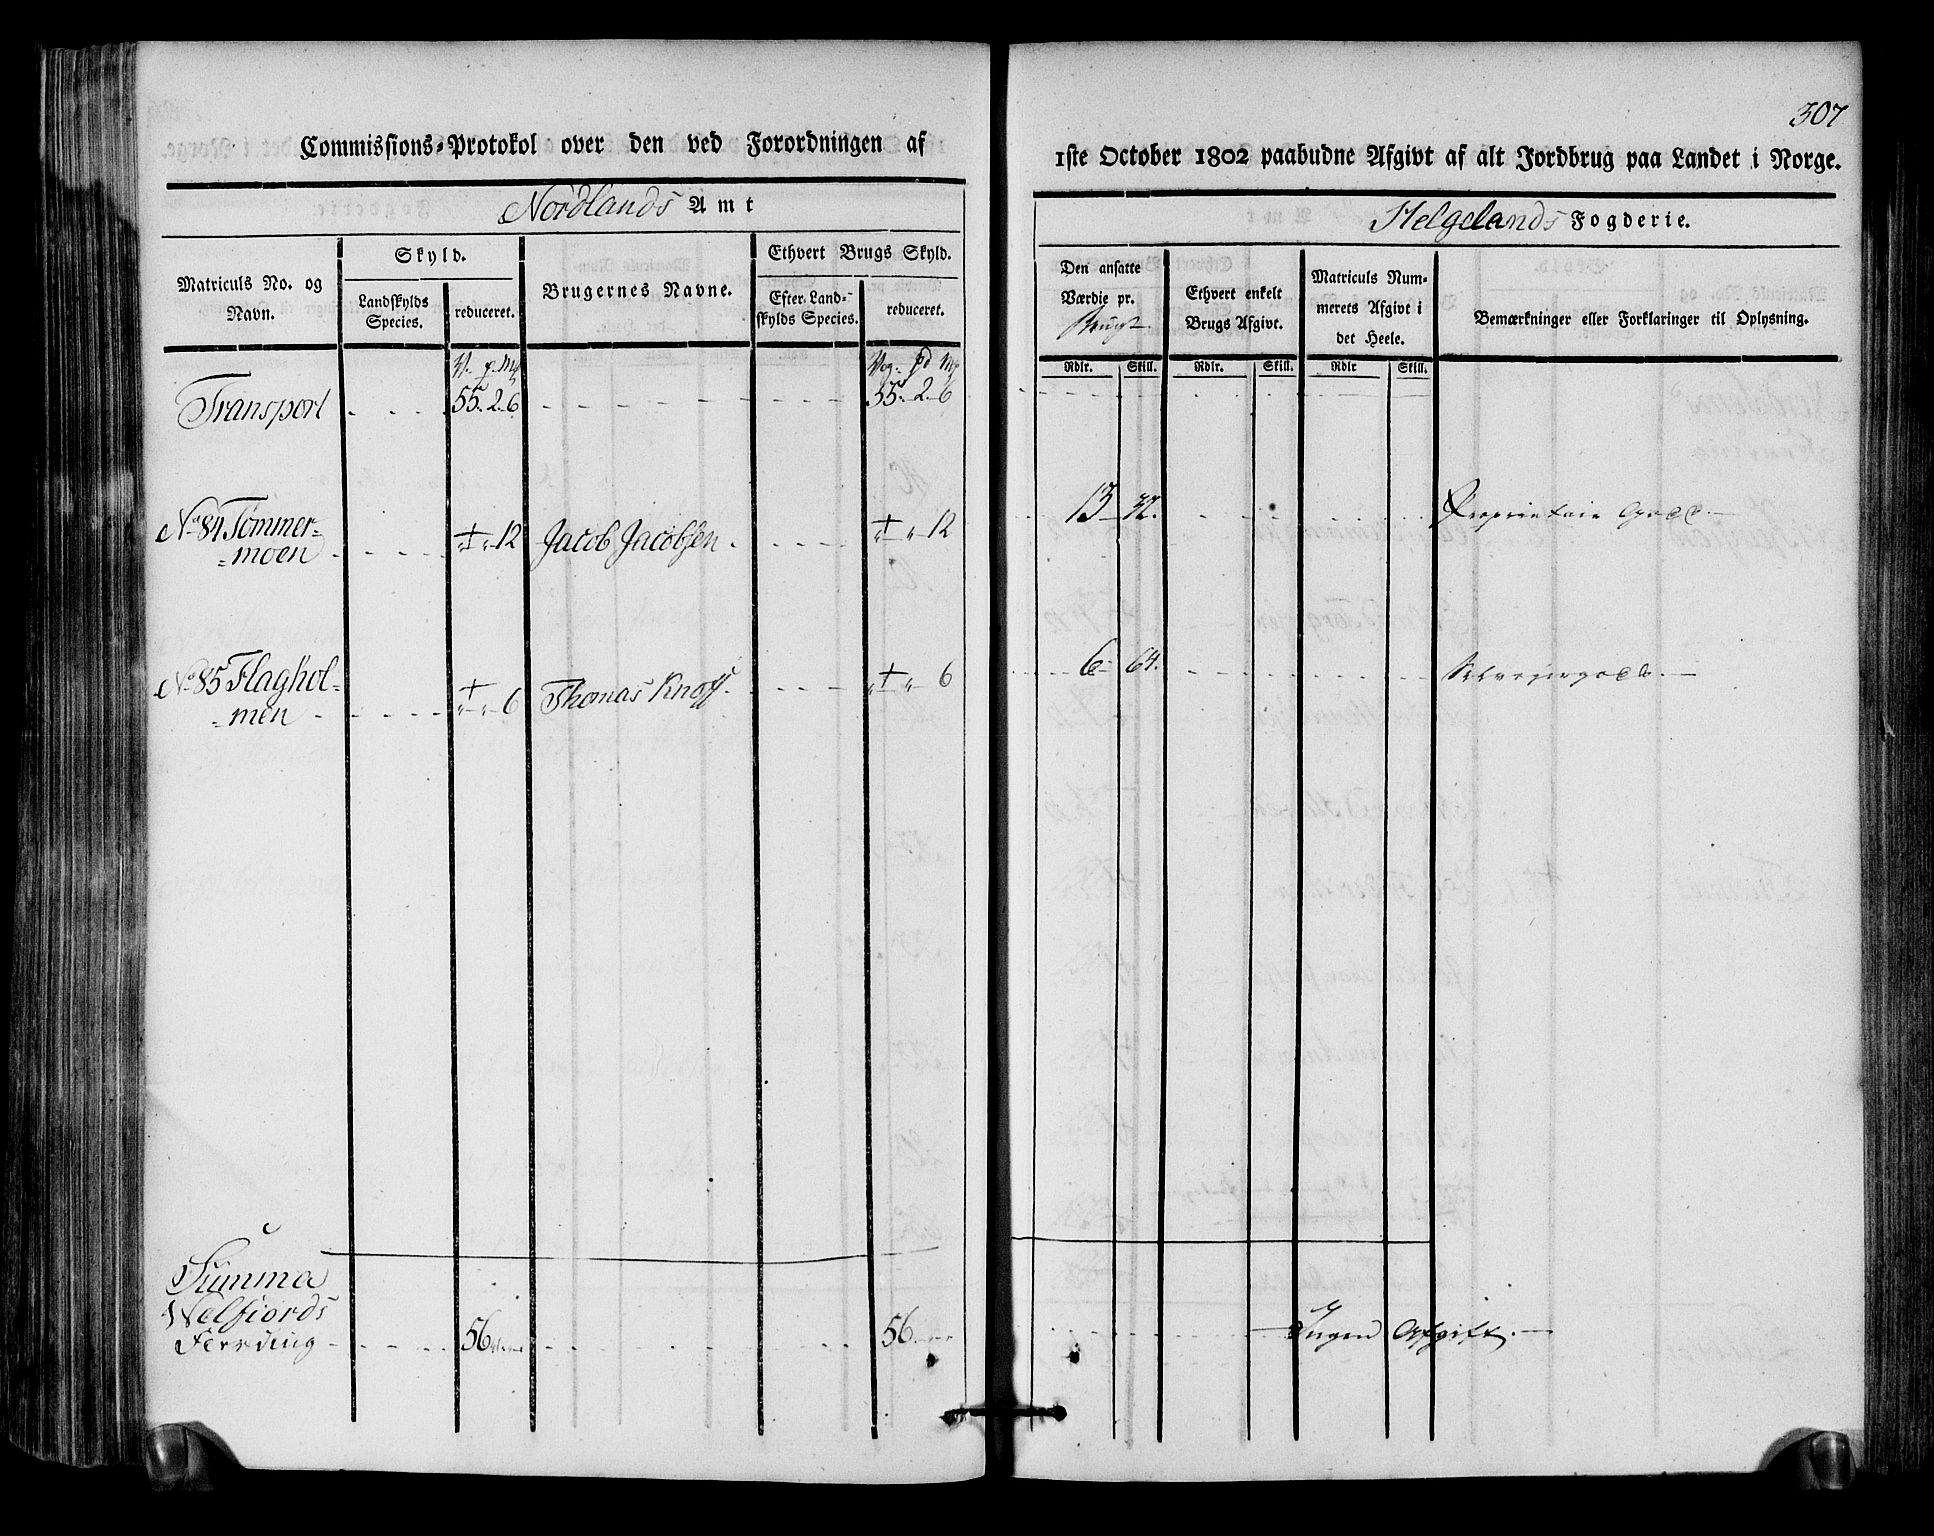 307
Commissions-Protokol over den ved Forordningen af
1ste October 1802 paabudne Afgivt af alt Jordbrug paa Landet i Norge.
Nordlands Amt
Helgelands Fogderie.
Matriculs No. og Navn.
Skyld.
Landskylds Species.
reduceret.
Brugernes Navne.
Ethvert Brugs Skyld.
Efter Landskylds Species.
reduceret.
Den ansatte Værdie pr. Brug
Ethvert enkelt Brugs Afgivt.
Matriculs Nummerets Afgivt i det Heele.
Bemærkninger eller Forklaringer til Oplysning.
Rdlr. Skill. Rdlr. Skill. Rdlr Skill.
V. p. Mk Vog. pd Mk
Transport 55. 2. 6 55. 2. 6
No 84 Tømmer= 13 32. Proprietair Godz.
=moen 12 Jacob Jacobsen 12
No 85 Flaghol= 6 64. Selvejergodz.
=men 6 Thomas Knoff 6
Summa
Welfiords
Fierding 56 56 Ingen Afgift.